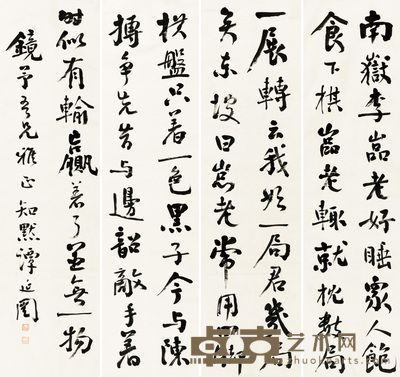 南嶽李嵓老好睡眾人飽
食下棋嵓老輒就枕數局
一展轉云我始一局君幾局
矣東坡曰嵓老常用四脚
棋盤只着一色黑子今与陳
摶爭先昔与邊韶敵手着
時似有輸贏着了並無一物
鏡予吾兄雅正 知默譚延闓
艺术网